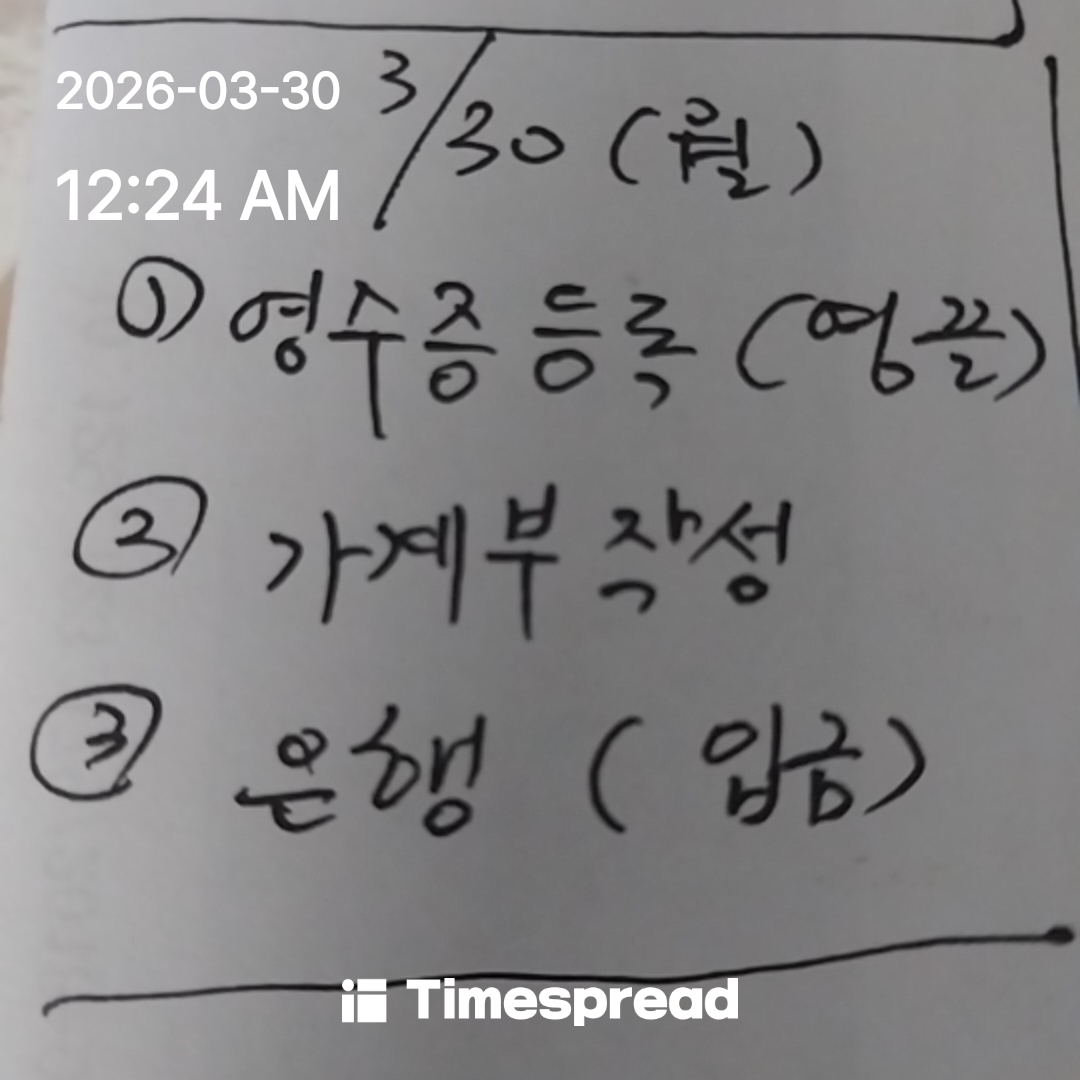 2026-03-30
12:24 AM
3/30 (월)
① 영수증 등록 (영끌)
② 가계부 작성
③ 은행 (입금)
Timespread